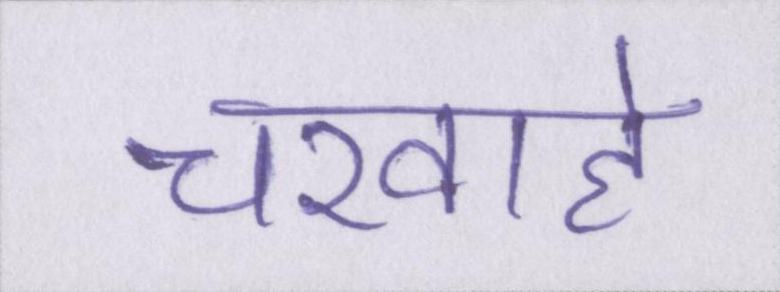 चरवाहे